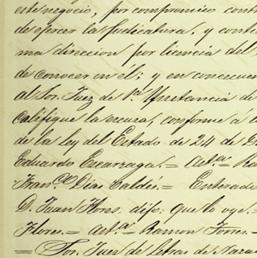 este negocio, por compromisos cont
de ejercer la judicatura, y conti
ma direccion por licencia del
de conocer en él; y en consecuen
al Sor. Juez de 1ª Instancia de
califique la escusa, conforme a
de la ley del Estado de 24 de D
Eduardo Escarzaga.= Asª. Ramo
Franco. Dias Valdés.= Enterado
D. Juan Flores: dijo: Que lo oye.=
Flores.= Asª. Ramon Torres.=
= Sor. Juez de Letras de